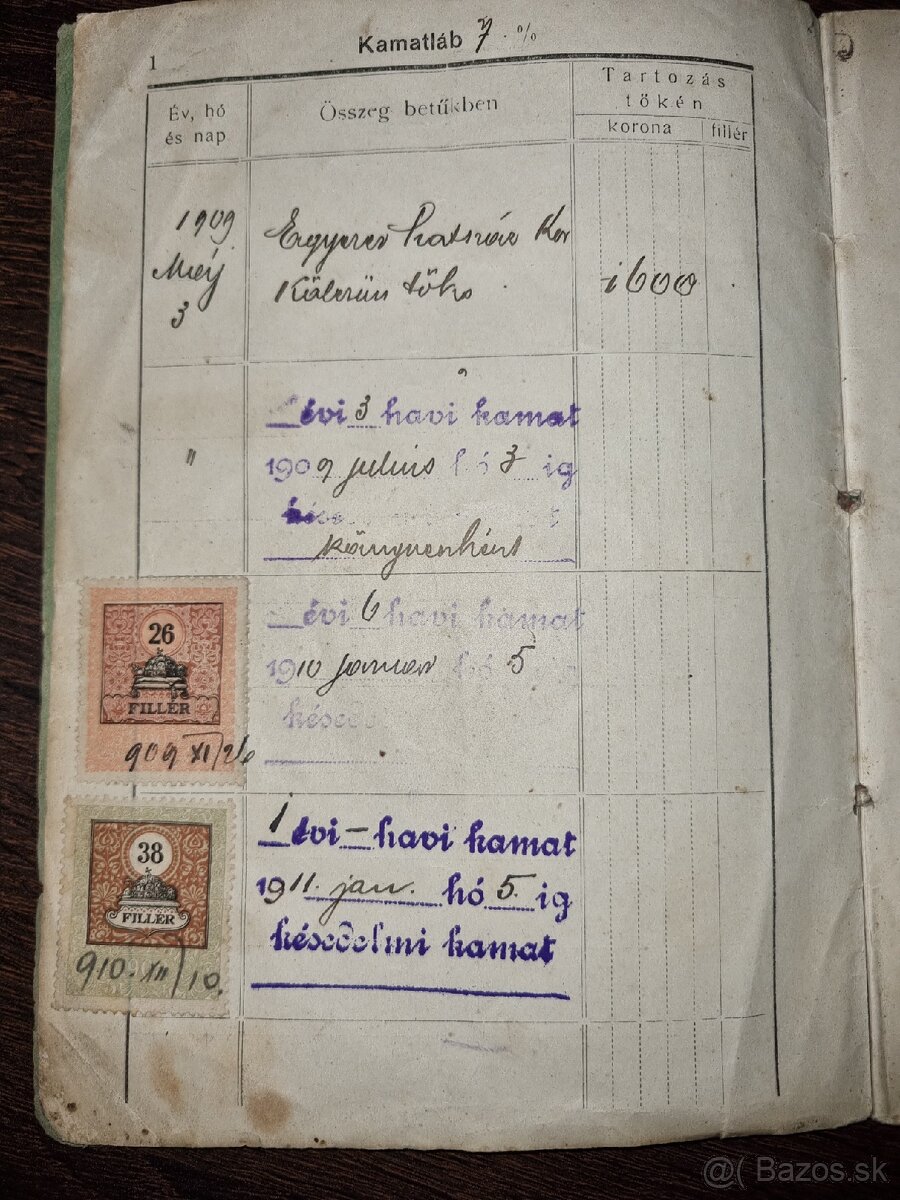 Kamatláb 7 %
1
Év, hó
és nap
Összeg betűkben
Tartozás
tőkén
korona
fillér
1909
Máj
3
Egyezer hatszáz Kor
Kölcsön tőke
1600
évi 3 havi kamat
"
1909 julius hó 3 ig
könyvenként
évi 6 havi kamat
1910 januar hó 5
késede
26
FILLÉR
909 XI/26
1 évi – havi kamat
1911. jan. hó 5. ig
késedelmi kamat
38
FILLÉR
910. XII/10.
@( Bazos.sk